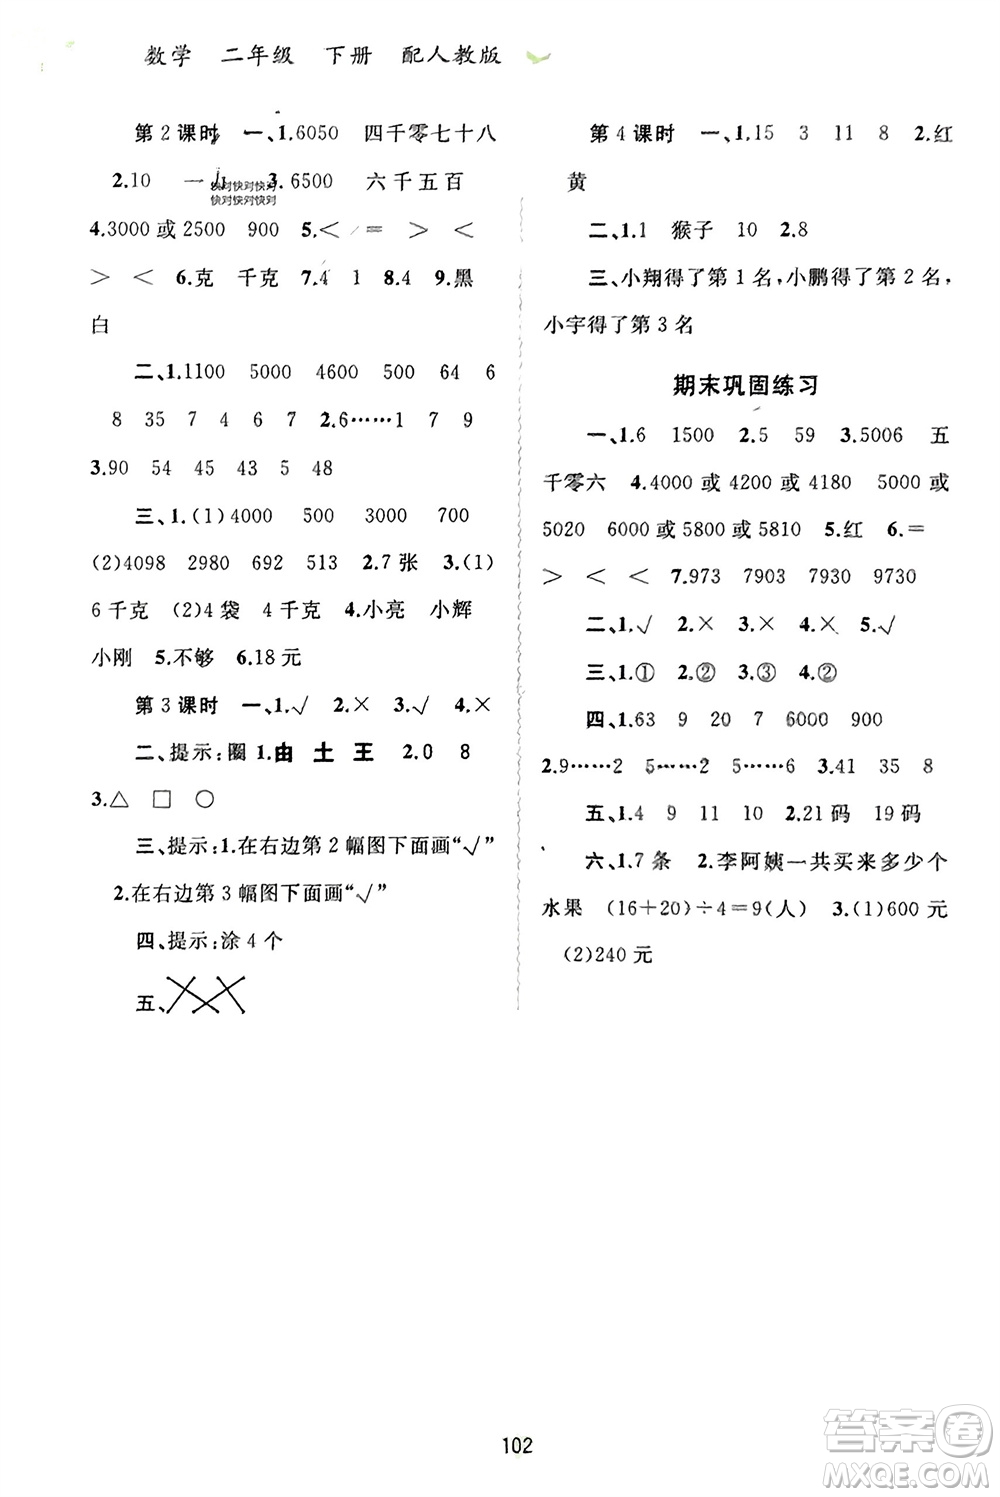 数学 二年级 下册 配人教版
第2课时 一、1.6050 四千零七十八
2.10 一 3.6500 六千五百
快对快对快对
快对快对快对
4.3000或2500 900 5.< = > <
> < 6.克 千克 7.4 1 8.4 9.黑
白
二、1.1100 5000 4600 500 64 6
8 35 7 4 6 7 2.6……1 7 9
3.90 54 45 43 5 48
三、1.(1)4000 500 3000 700
(2)4098 2980 692 513 2.7张 3.(1)
6千克 (2)4袋 4千克 4.小亮 小辉
小刚 5.不够 6.18元
第3课时 一、1.√ 2.× 3.√ 4.×
二、提示:圈1.由 土 王 2.0 8
3.△ □ ○
三、提示:1.在右边第2幅图下面画“√”
2.在右边第3幅图下面画“√”
四、提示:涂4个
五、
第4课时 一、1.15 3 11 8 2.红
黄
二、1.1 猴子 10 2.8
三、小翔得了第1名,小鹏得了第2名,
小宇得了第3名
期末巩固练习
一、1.6 1500 2.5 59 3.5006 五
千零六 4.4000或4200或4180 5000或
5020 6000或5800或5810 5.红 6.=
> < < 7.973 7903 7930 9730
二、1.√ 2.× 3.× 4.× 5.√
三、1.① 2.② 3.③ 4.②
四、1.63 9 20 7 6000 900
2.9……2 5……2 5……6 3.41 35 8
五、1.4 9 11 10 2.21码 19码
六、1.7条 2.李阿姨一共买来多少个
水果 (16+20)÷4=9(人) 3.(1)600元
(2)240元
102
答案卷
MXQE.COM